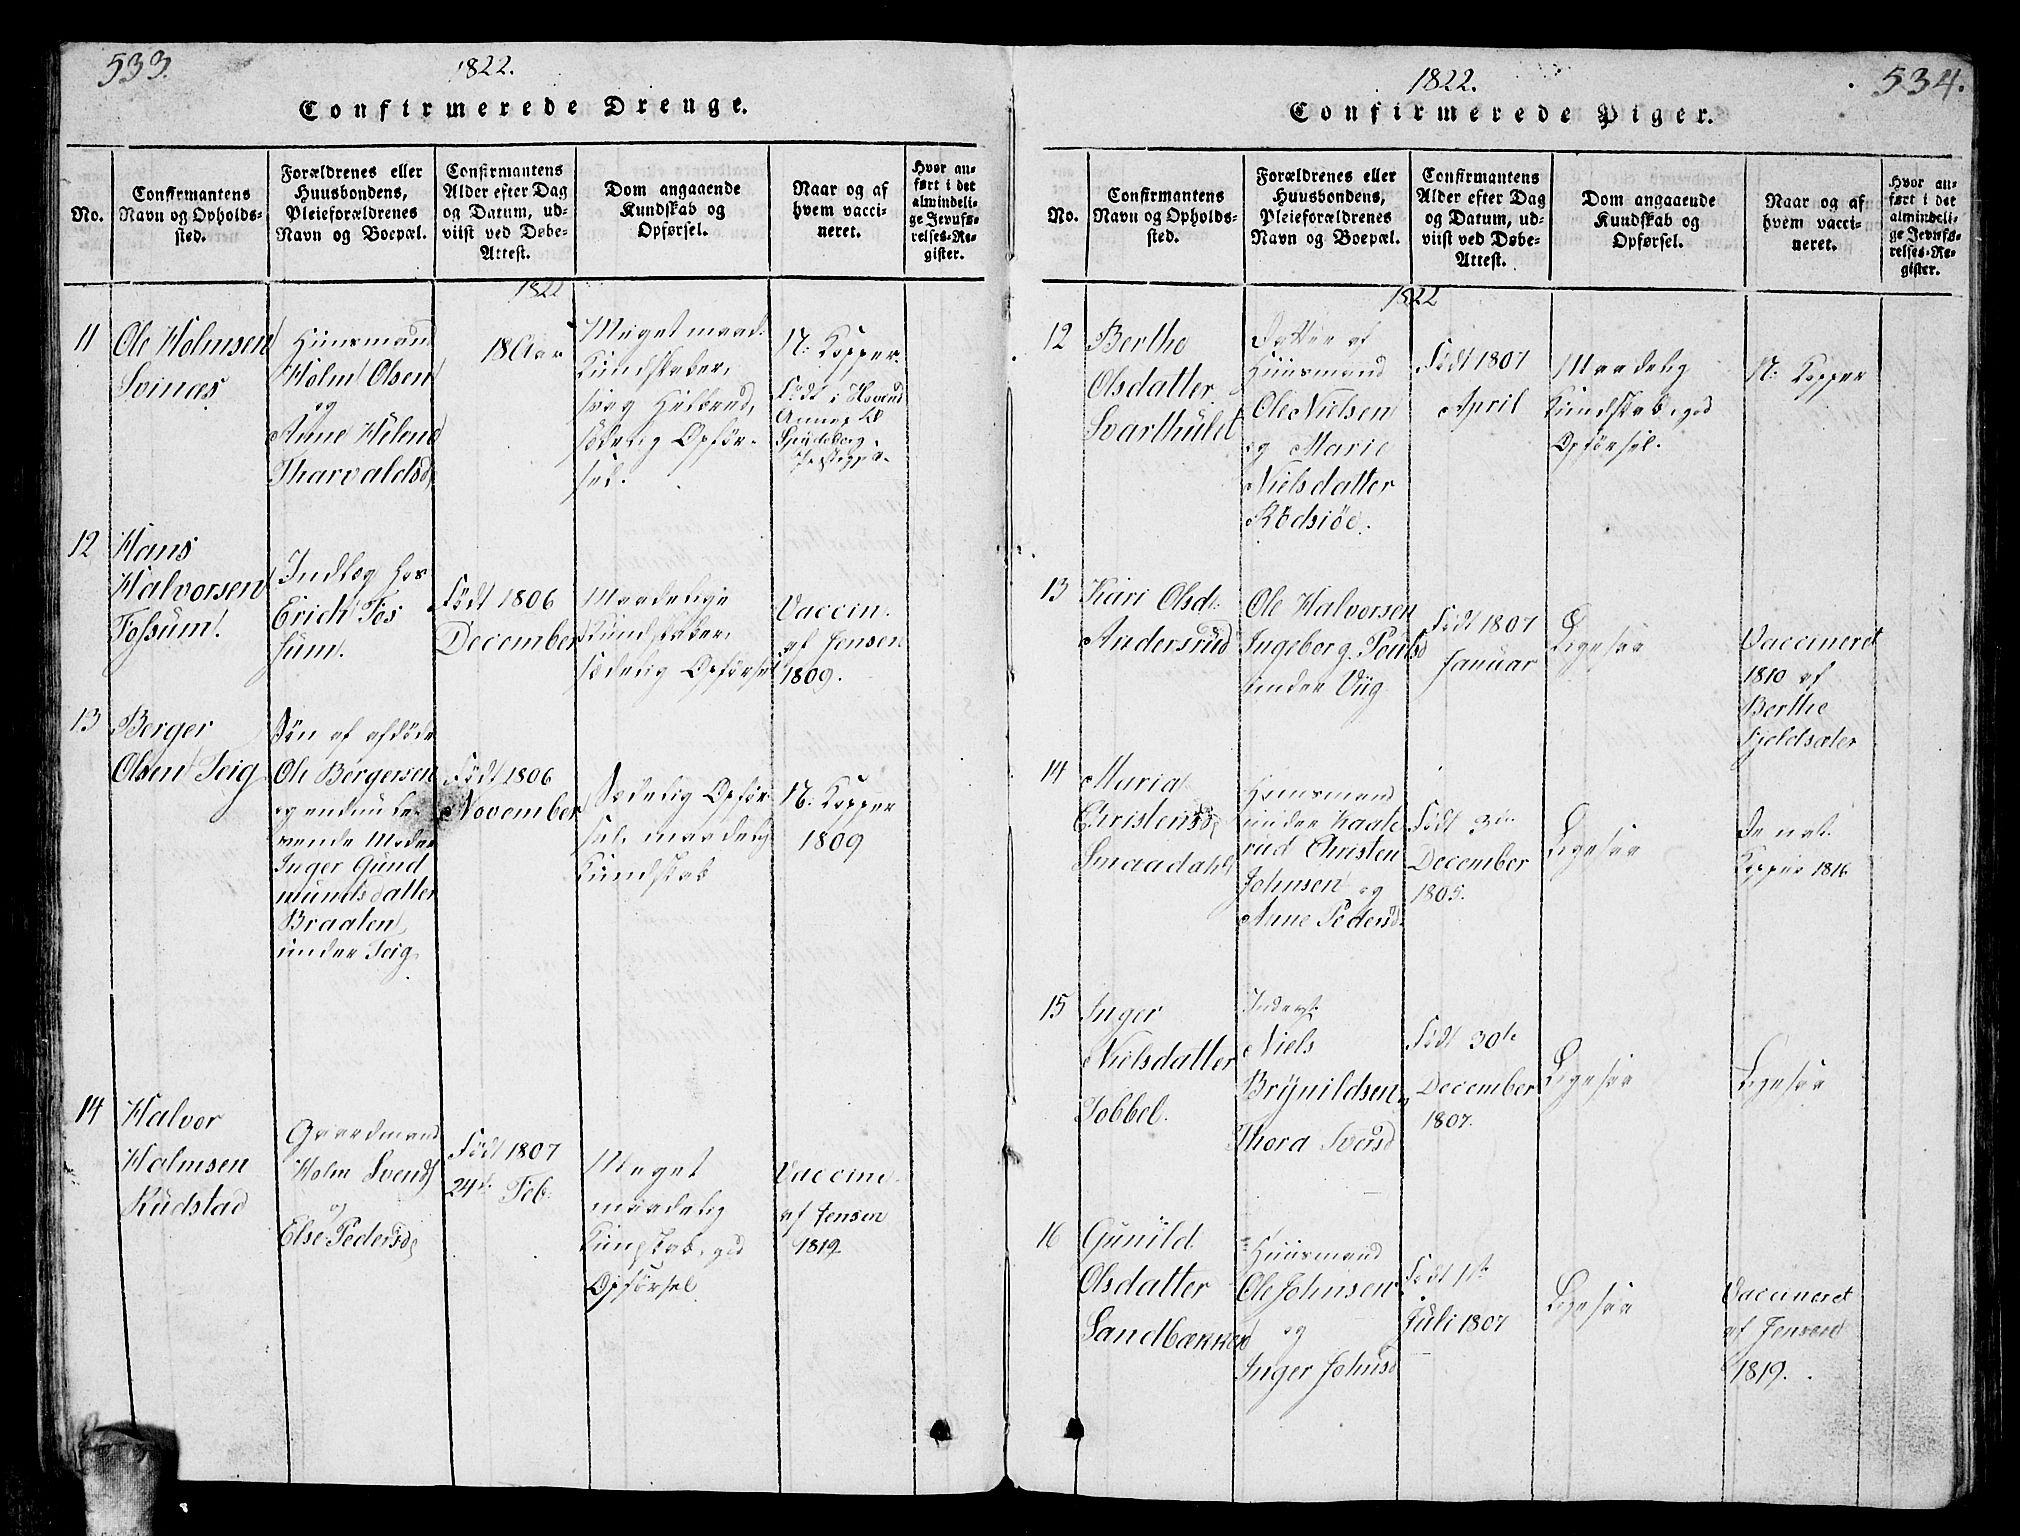 533.
1822.
Confirmerede Drenge.
No.
Confirmantens
Navn og Opholds-
sted.
Forældrenes eller
Huusbondens,
Pleieforældrenes
Navn og Boepæl.
Confirmantens
Alder efter Dag
og Datum, ud-
viist ved Døbe-
Attest.
Dom angaaende
Kundskab og
Opførsel.
Naar og af
hvem vacci-
neret.
Hvor an-
ført i det
almindeli-
ge Jevnfø-
relses-Re-
gister.
1822
11
Ole Holmsen
Svinæs
Huusmand
Holm Olsen
og
Anne Helene
Tharvaldsd
18 Aar
Meget maad.
Kundskaber,
svag Helbred,
sædelig Opfør-
sel.
N: Kopper.
Født i
Spydeberg
12
Hans
Halvorsen
Fossum.
Indlæg hos
Erich Fos
sum.
Født 1806
December
Maadelige
Kundskaber,
sædelig Opførsel
Vaccin.
af Jensen
1809.
13
Berger
Olsen Teig
Søn af afdøde
Ole Børgersen
og endnu le-
vende Moder
Inger Gund
mundsdatter
Braaten
under Teig
Født 1806
November
Sædelig Opfør
sel, maadelig
Kundskab
N: Kopper
1809
14
Halvor
Holmsen
Rudstad
Gaardmand
Holm Svends
og
Else Pedersd
Født 1807
24de Feb.
Meget
maadelig
Kundskab, god
Opførsel
Vaccine
af Jensen
1819
1822.
534.
Confirmerede Piger.
No.
Confirmantens
Navn og Opholds-
sted.
Forældrenes eller
Huusbondens,
Pleieforældrenes
Navn og Boepæl.
Confirmantens
Alder efter Dag
og Datum, ud-
viist ved Døbe-
Attest.
Dom angaaende
Kundskab og
Opførsel.
Naar og af
hvem vacci-
neret.
Hvor an-
ført i det
almindeli-
ge Jevnfø-
relses-Re-
gister.
1822
12
Berthe
Olsdatter
Svarthuld
Datter af
Huusmand
Ole Nielsen
og Marie
Nielsdatter
Rødsiøe.
Født 1807
April
Maadelig
Kundskab, god
Opførsel.
N: Kopper
13
Kari Olsd.
Andersrud
Ole Halvorsen
Ingeborg Poulsd
under Viig
Født 1807
Januar
Ligesaa
Vaccineret
1810 af
Berthe
Fjeldsæter
14
Maria
Christensd
Smaadahl
Huusmand
under Kaate
rud Christen
Johnsen og
Anne Pedersd.
Født 3die
December
1805.
Ligesaa
De nat.
Kopper 1816
15
Inger
Nielsdatter
Tobbel.
Inderst
Niels
Brynildsen
Thora Sversd
Født 30te
December
1807.
Ligesaa
Ligesaa
16
Gunild
Olsdatter
Sandbækken
Huusmand
Ole Johnsen
og
Inger Johnsd
Født 1ste
Juli 1807
Ligesaa
Vaccineret
af Jensen
1819.